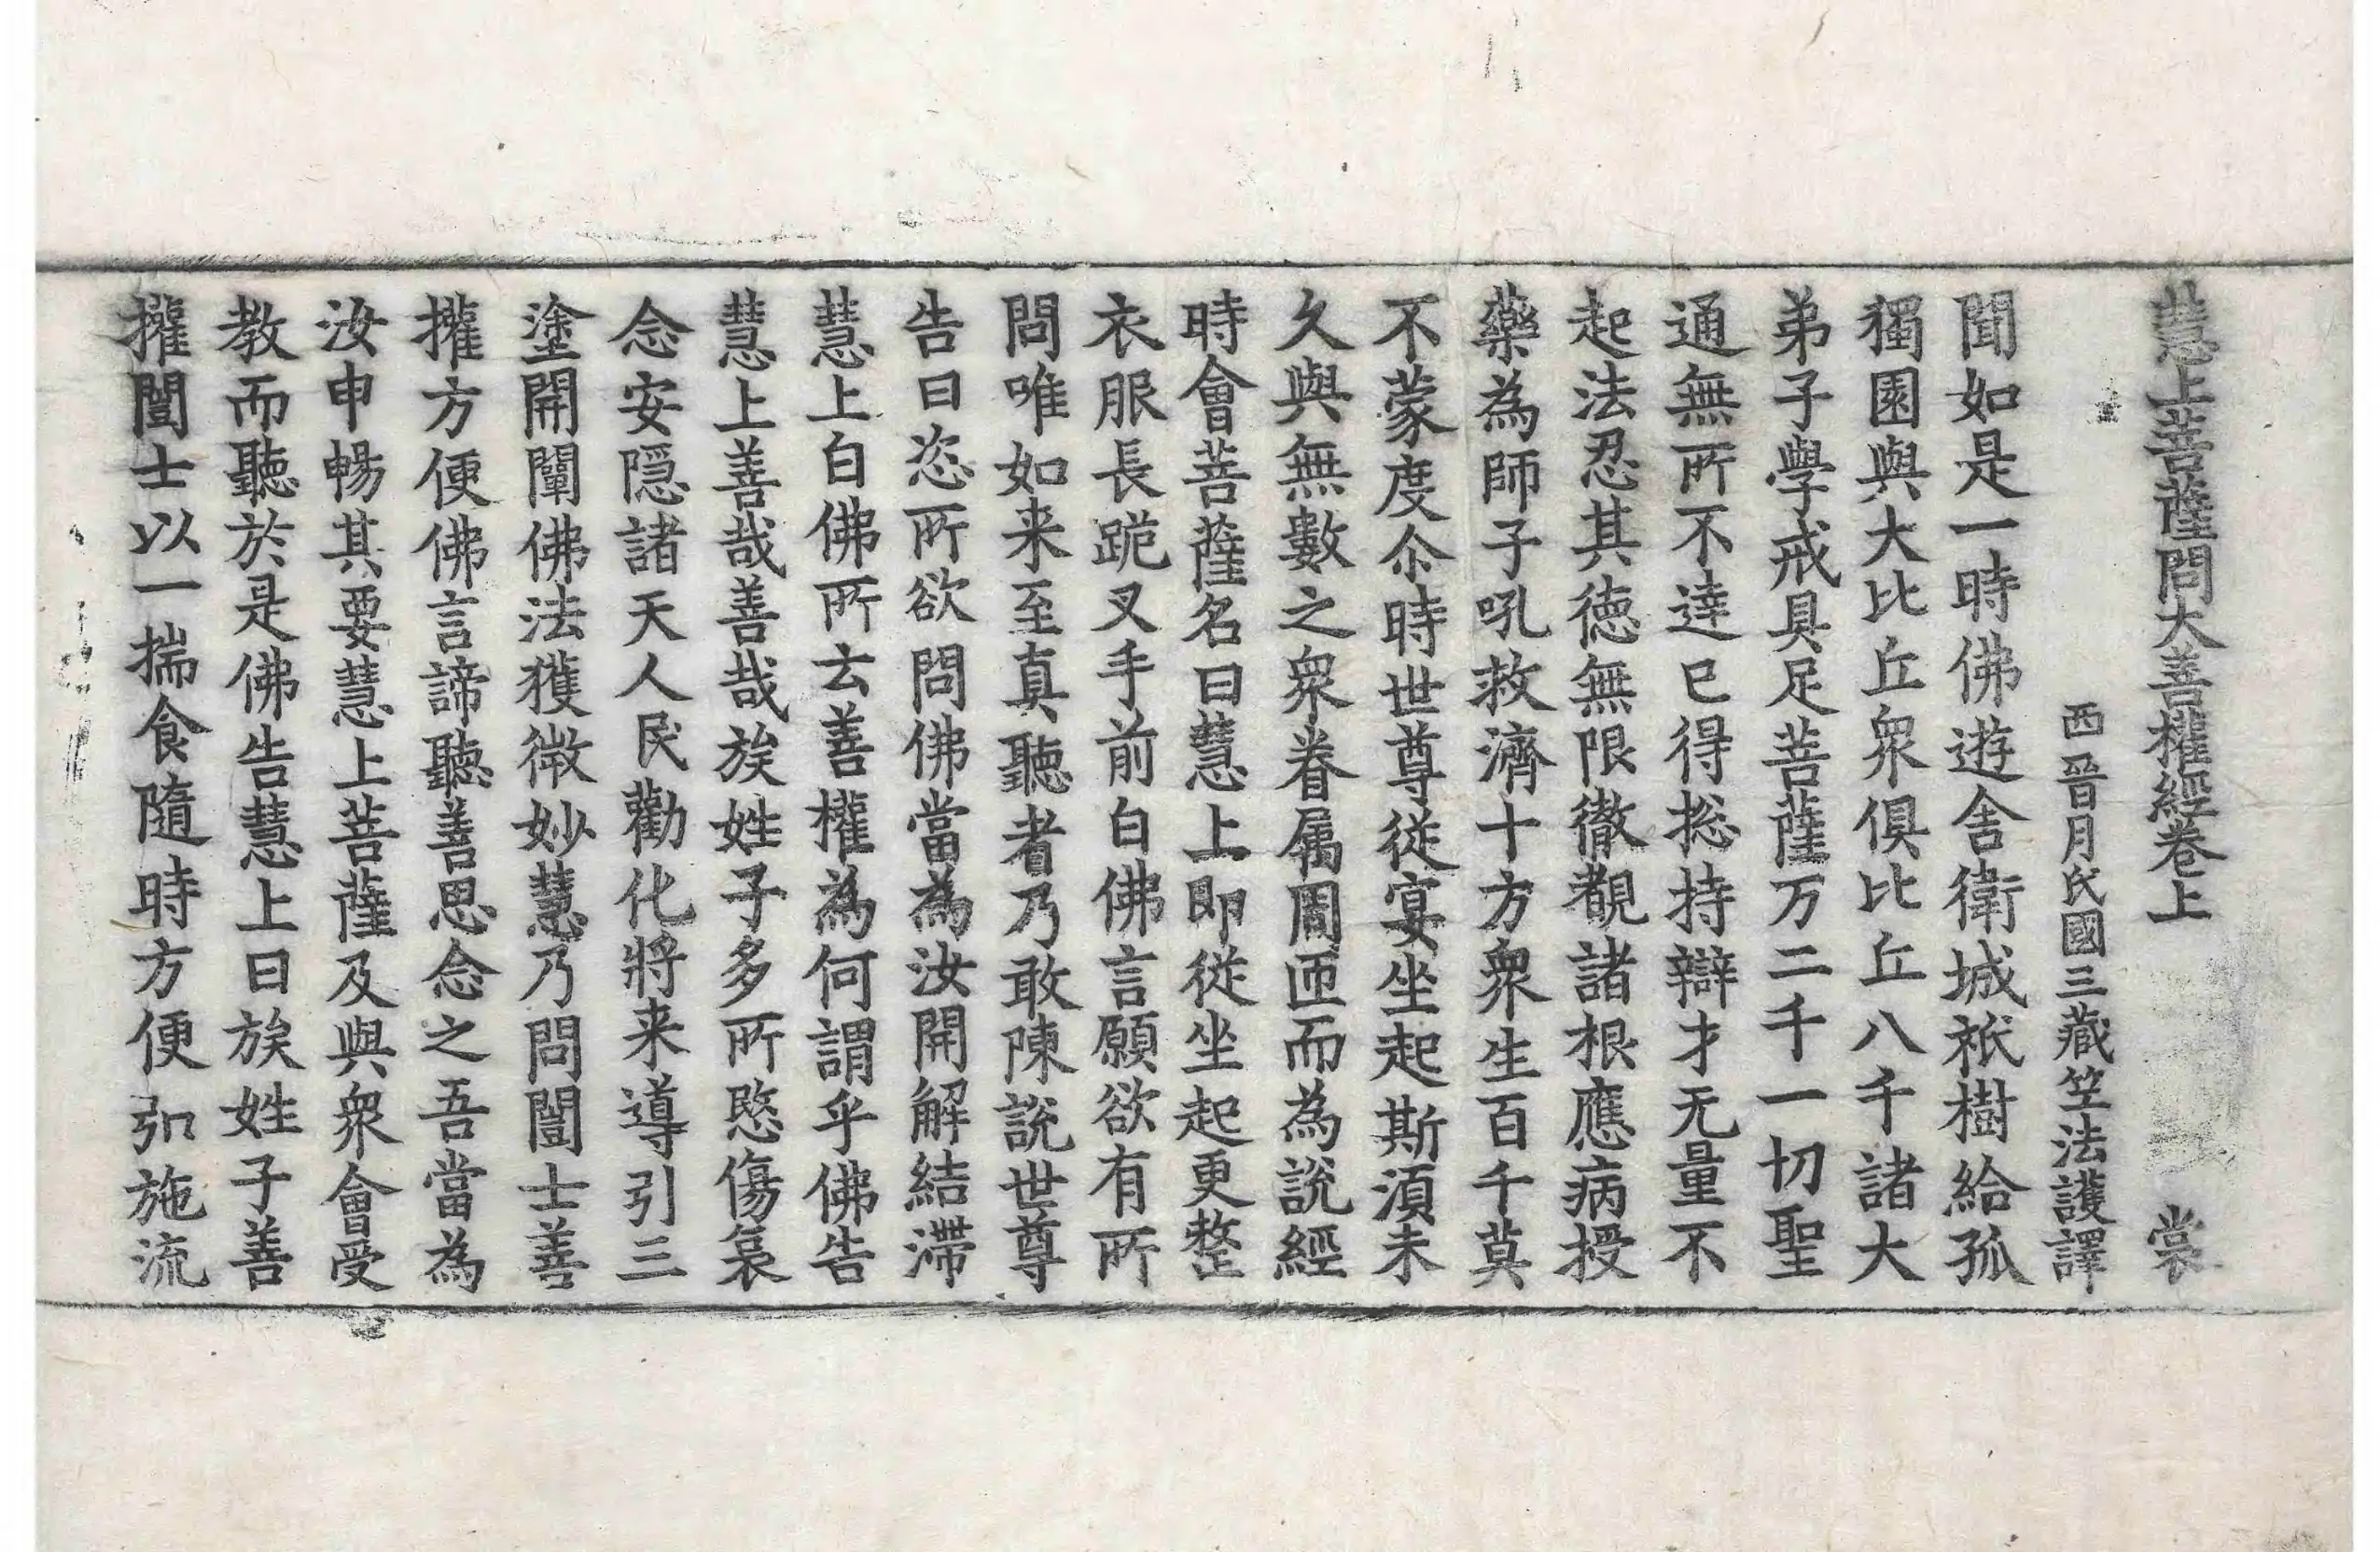 慧上菩薩問大善權經卷上　裳
西晉月氏國三藏竺法護譯
聞如是一時佛遊舍衛城祇樹給孤
獨園與大比丘衆俱比丘八千諸大
弟子學戒具足菩薩万二千一切聖
通無所不達已得捴持辯才无量不
起法忍其德無限徹覩諸根應病授
藥為師子吼救濟十方衆生百千莫
不蒙度尒時世尊從宴坐起斯湏未
久與無數之衆眷属周匝而為説經
時會菩薩名曰慧上即從坐起更整
衣服長跪叉手前白佛言願欲有所
問唯如来至真聽者乃敢陳説世尊
告曰恣所欲問佛當為汝開解結滯
慧上白佛所云善權為何謂乎佛告
慧上善哉善哉族姓子多所愍傷哀
念安隠諸天人民勸化將来導引三
塗開闡佛法獲微妙慧乃問闓士善
權方便佛言諦聽善思念之吾當為
汝申暢其要慧上菩薩及與衆會受
教而聽於是佛告慧上曰族姓子善
權闓士以一揣食隨時方便弘施流